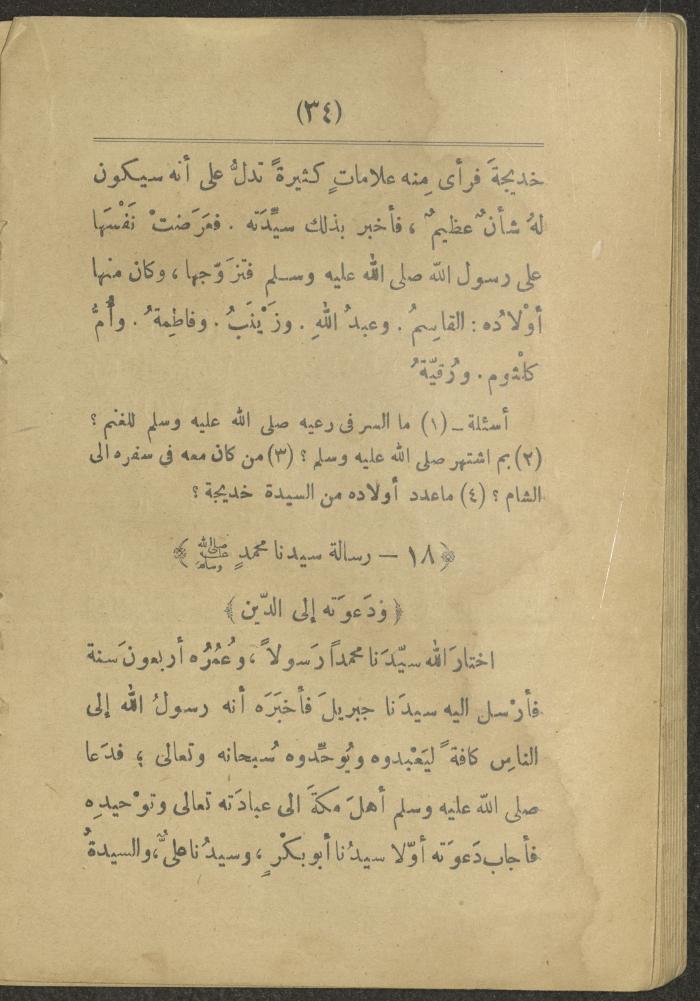 (٣٤)
خديجةَ فرأى مِنه علاماتٍ كثيرةً تدلُّ على أنه سيكون
لهُ شأنٌ عظيمٌ ، فأخبر بذلك سيِّدَته . فعَرَضتْ نَفْسَها
على رسول الله صلى الله عليه وسلم فتزَوّجها ، وكان منها
أوْلادُه : القاسِمُ . وعبدُ اللهِ . وزَيْنَبُ . وفاطِمةُ . وأُمُّ
كلْثوم . ورُقيّةُ
أسئلة ــ (١) ما السر فى رعيه صلى الله عليه وسلم للغنم ؟
(٢) بم اشتهر صلى الله عليه وسلم ؟ (٣) من كان معه فى سفره الى
الشام ؟ (٤) ماعدد أولاده من السيدة خديجة ؟
﴿ ١٨ — رسالة سيدنا محمدٍ صلى الله عليه وسلم ﴾
﴿ ودَعوَته إلى الدّين ﴾
اختارَ الله سيّدَنا محمداً رَسولاً ، وعُمُرُه أربعونَ سنة
فأرْسل اليه سيدَنا جبريلَ فأخبَرَه أنه رسولُ الله إلى
الناسِ كافةً ليَعْبدوه ويُوحِّدوه سُبحانه وتعالى ؛ فدَعا
صلى الله عليه وسلم أهلَ مكةَ الى عبادَته تعالى وتوْحيدِه
فأجاب دَعوَته أوّلا سيدُنا أبو بكْرٍ ، وسيدُنا علىٌّ ، والسيدةُ